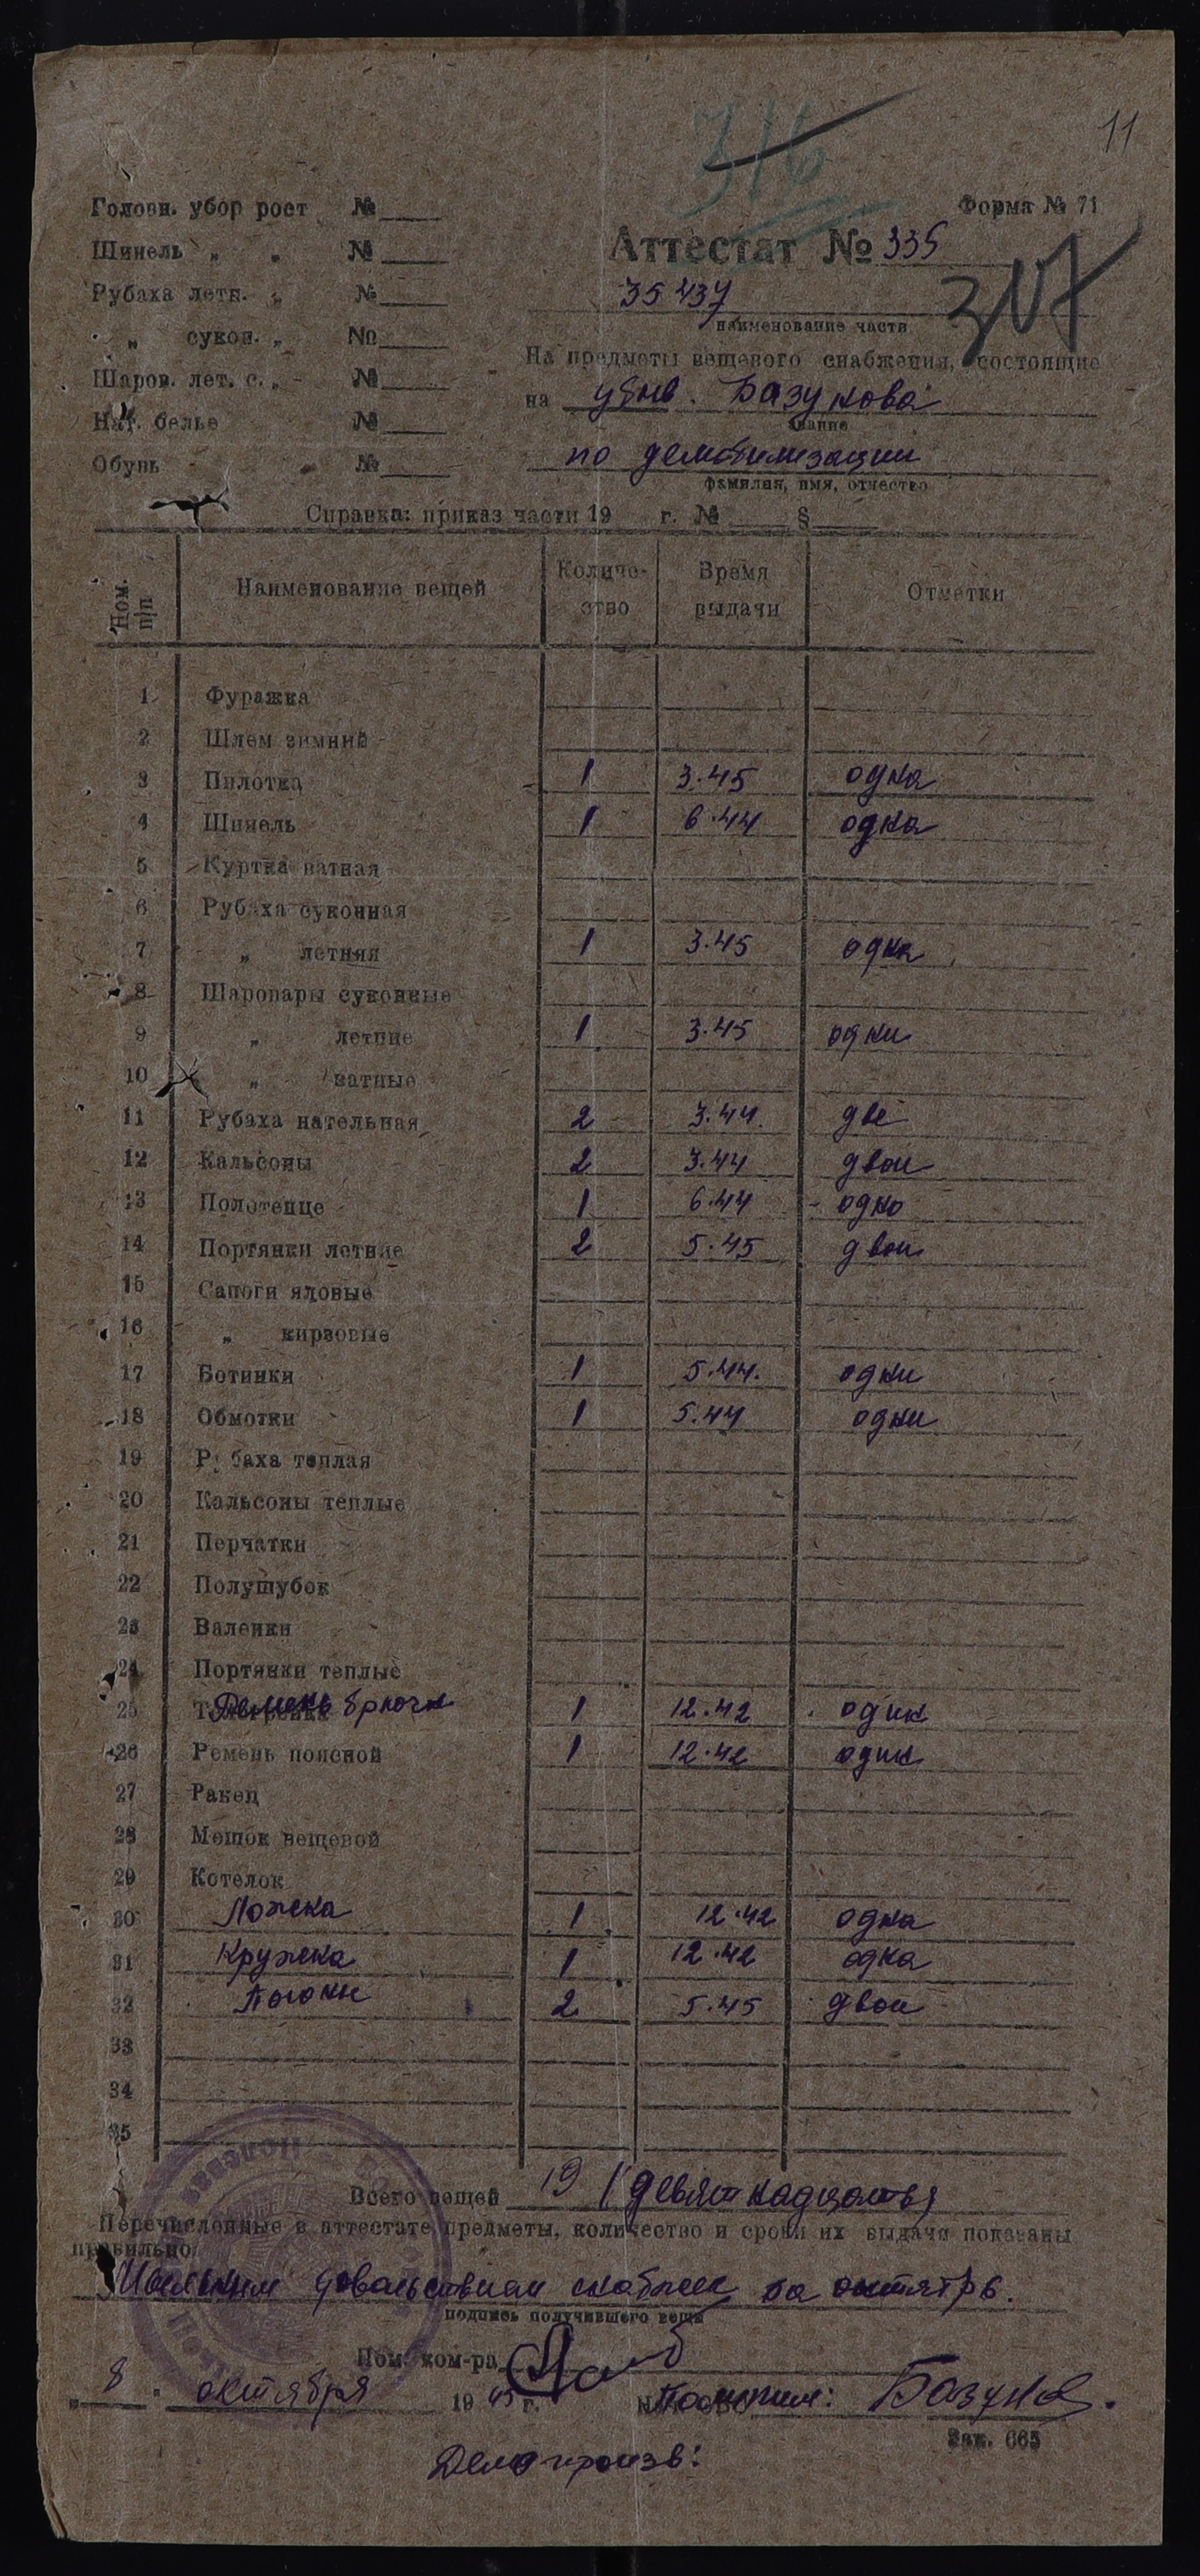 11
316
Форма № 71
Головн. убор рост №
Шинель „ „ №
Рубаха летн. „ №
„ сукон. „ №
Шаров. лет. с. „ №
Нат. белье №
Обувь №
Аттестат № 335
35437
наименование части
307
На предметы вещевого снабжения, состоящие
на убыв. Базунова
звание
по демобилизации
фамилия, имя, отчество
Справка: приказ части 19 г. № §
Ном. п/п Наименование вещей Количество Время выдачи Отметки
1 Фуражка
2 Шлем зимний
3 Пилотка 1 3.45 одна
4 Шинель 1 6.44 одна
5 Куртка ватная
6 Рубаха суконная
7 „ летняя 1 3.45 одна
8 Шаровары суконные
9 „ летние 1 3.45 одни
10 „ ватные
11 Рубаха нательная 2 3.44 две
12 Кальсоны 2 3.44 двои
13 Полотенце 1 6.44 одно
14 Портянки летние 2 5.45 двои
15 Сапоги яловые
16 „ кирзовые
17 Ботинки 1 5.44. одни
18 Обмотки 1 5.44 одни
19 Рубаха теплая
20 Кальсоны теплые
21 Перчатки
22 Полушубок
23 Валенки
24 Портянки теплые
25 Ремень брючн 1 12.42 один
26 Ремень поясной 1 12.42 один
27 Ранец
28 Мешок вещевой
29 Котелок
30 Ложка 1 12.42 одна
31 Кружка 1 12.42 одна
32 Погоны 2 5.45 двои
33
34
35
Всего вещей 19 (девятнадцать)
Перечисленные в аттестате предметы, количество и сроки их выдачи показаны
правильно
Мыльным довольствием снабжен за октябрь.
подпись получившего вещи
Пом. ком-ра
„ 8 " октября 19 45 г. Получил: Базунов.
Зак. 665
Делопроизв: